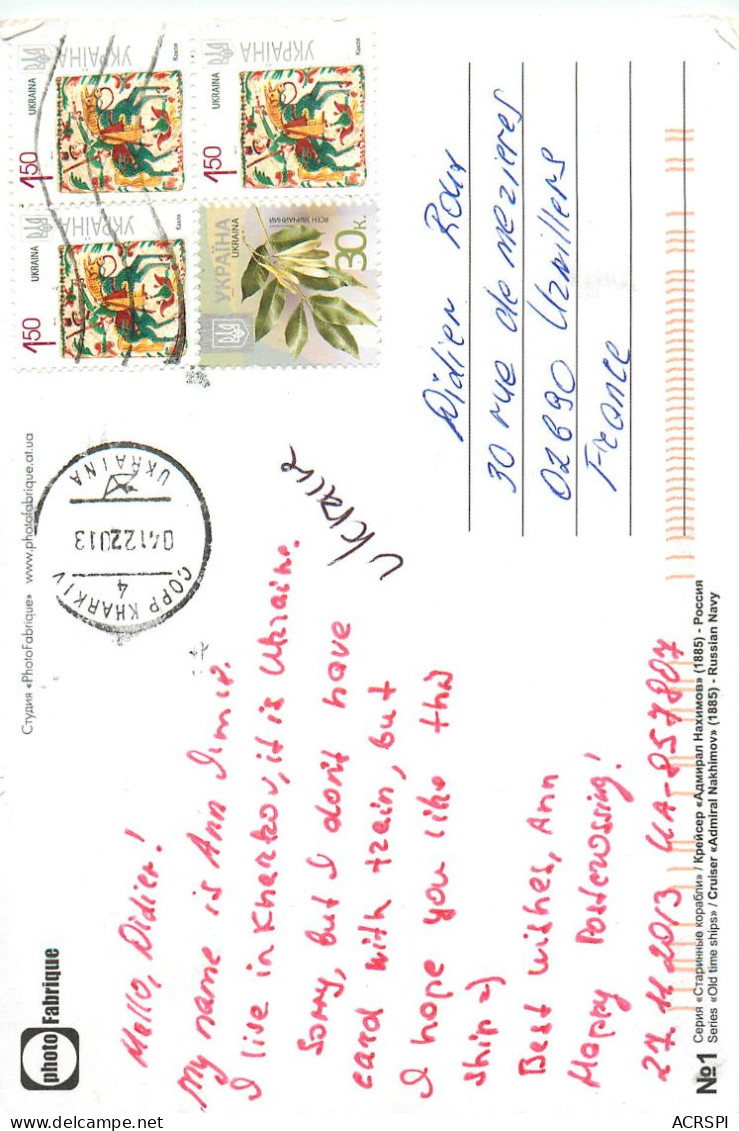 photo
Fabrique
Студия «PhotoFabrique» www.photofabrique.at.ua
Hello, Didier!
My name is Ann
I live in Kharkov, it is Ukraine.
Sorry, but I don't have
card with train, but
I hope you like this
ship =)
Best wishes, Ann
Happy Postcrossing!
27 11 2013 UA-857807
№1
Серия «Старинные корабли» / Крейсер «Адмирал Нахимов» (1885) - Россия
Series «Old time ships» / Cruiser «Admiral Nakhimov» (1885) - Russian Navy
UKRAINA
04122013
4
COPP KHARKIV
Ukraine
Didier Roux
30 rue de mezieres
02690 Urvillers
France
УКРАЇНА
UKRAINA
Кахля
1.50
УКРАЇНА
UKRAINA
Кахля
1.50
УКРАЇНА
UKRAINA
Кахля
1.50
УКРАЇНА
UKRAINA
ЯСЕН ЗВИЧАЙНИЙ
30к.
ACRSPI